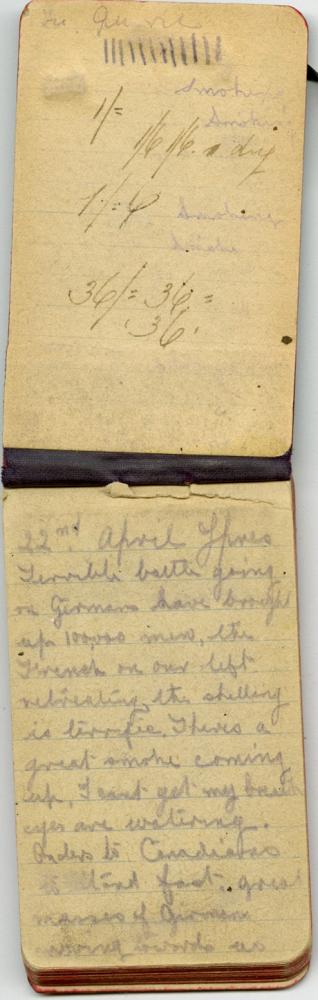 Smoking
Smoking
1/=
1/6 1/6. a day
1/=
Smoking
Smoke
36/= 36 =
36
22nd April Ypres
Terrible battle going
on Germans have brought
up 100,000 men, the
French on our left
retreating, the shelling
is terrific. Theres a
great smoke coming
up, I cant get my breath
eyes are watering.
Orders to Canadians
to stand fast. great
masses of German
moving towards us